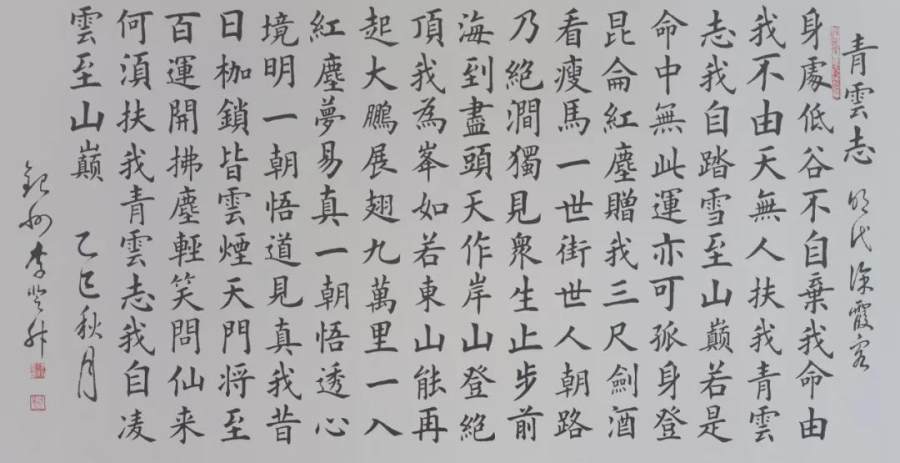 青雲志 明代徐霞客
身處低谷不自棄我命由
我不由天無人扶我青雲
志我自踏雪至山巔若是
命中無此運亦可孤身登
昆侖紅塵贈我三尺劍酒
看瘦馬一世街世人朝路
乃絕澗獨見眾生止步前
海到盡頭天作岸山登絕
頂我為峯如若東山能再
起大鵬展翅九萬里一入
紅塵夢易真一朝悟透心
境明一朝悟道見真我昔
日枷鎖皆雲煙天門將至
百運開拂塵輕笑問仙来
何須扶我青雲志我自凌
雲至山巔 乙巳秋月
州李升